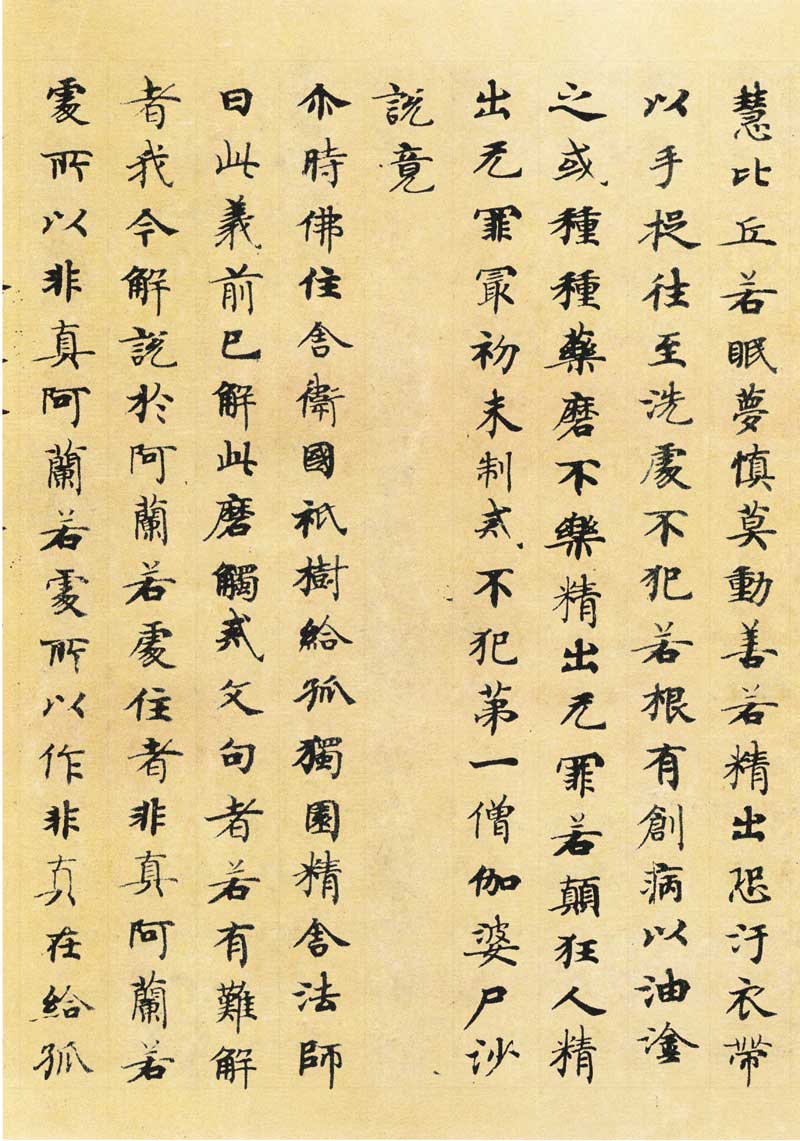 慧比丘若眠夢慎莫動善若精出恐汙衣帶
以手捉往至洗處不犯若根有創病以油塗
之或種種藥磨不樂精出无罪若顛狂人精
出无罪冣初未制戒不犯第一僧伽婆尸沙
說竟
尒時佛住舍衛國祇樹給孤獨園精舍法師
曰此義前已解此磨觸戒文句者若有難解
者我今解說於阿蘭若處住者非真阿蘭若
處所以非真阿蘭若處所以作非真在給孤